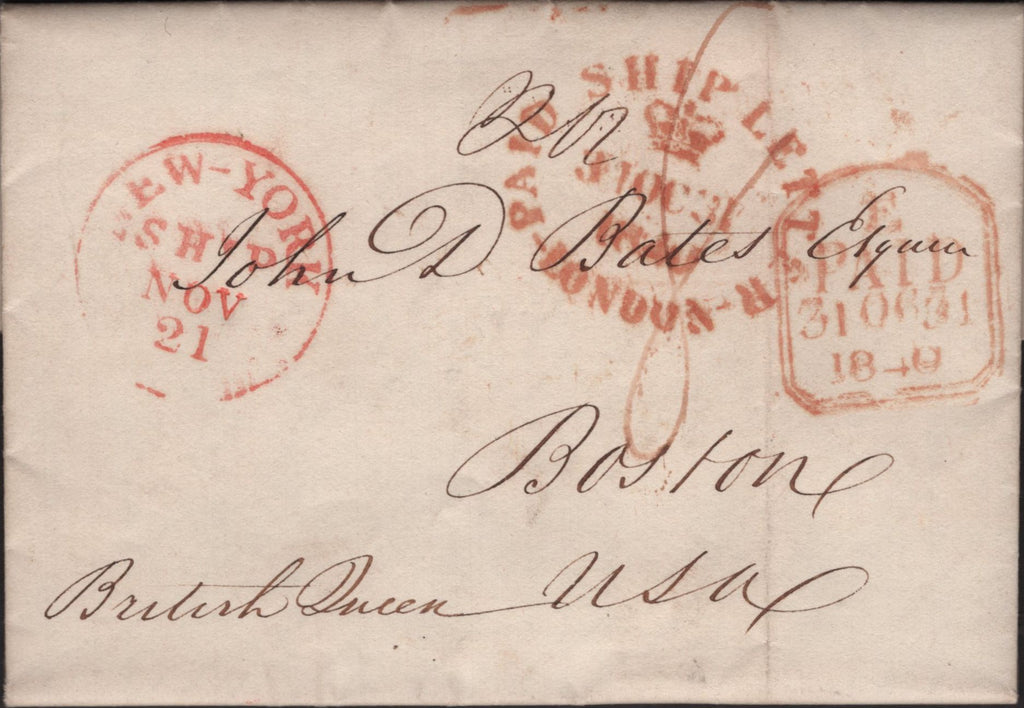 PAID SHIP LETTER LONDON
31 OC 31
NEW-YORK
SHIP
NOV
21
E
PAID
31 OC 31
1840
John D Bates Esquire
Boston
USA
British Queen